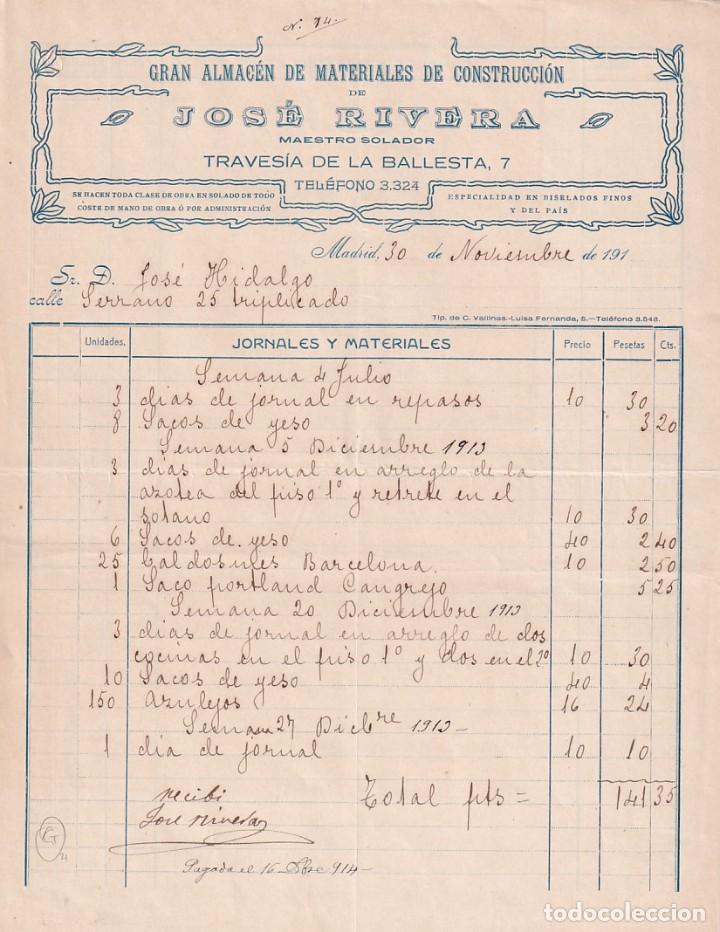 N. 74.
GRAN ALMACÉN DE MATERIALES DE CONSTRUCCIÓN
DE
JOSÉ RIVERA
MAESTRO SOLADOR
TRAVESÍA DE LA BALLESTA, 7
TELÉFONO 3.324
SE HACEN TODA CLASE DE OBRA EN SOLADO DE TODO
COSTE DE MANO DE OBRA Ó POR ADMINISTRACIÓN
ESPECIALIDAD EN BISELADOS FINOS
Y DEL PAÍS
Madrid, 30 de Noviembre de 191
Sr. D. José Hidalgo
calle Serrano 25 triplicado
Tip. de C. Vallinas.-Luisa Fernanda, 5.—Teléfono 3.548.
Unidades. JORNALES Y MATERIALES Precio Pesetas Cts.
Semana 4 Julio
3 dias de jornal en repasos 10 30
8 Sacos de yeso 3 20
Semana 5 Diciembre 1913
3 dias de jornal en arreglo de la
azotea del piso 1º y retrete en el
sotano 10 30
6 Sacos de yeso 40 2 40
25 Baldosines Barcelona. 10 2 50
1 Saco portland Cangrejo 5 25
Semana 20 Diciembre 1913
3 dias de jornal en arreglo de dos
cocinas en el piso 1º y dos en el 2º 10 30
10 Sacos de yeso 40 4
150 Azulejos 16 24
Semana 27 Dicbre 1913-
1 dia de jornal 10 10
Total pts = 141 35
recibi
José Rivera
Pagada el 16 Dbre 914-
todocoleccion